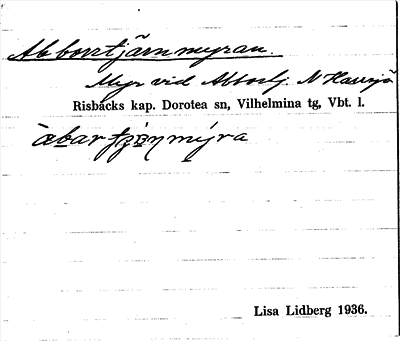 Abborrtjärnmyran.
Myr vid Abbortj. N Havsjö
Risbäcks kap. Dorotea sn, Vilhelmina tg, Vbt. l.
àbar tjò̤ṇmýra
Lisa Lidberg 1936.